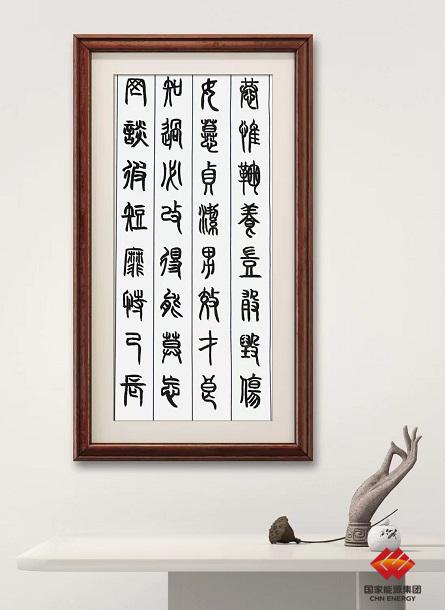 恭惟鞠養豈敢毀傷
女慕貞潔男效才良
知過必改得能莫忘
罔談彼短靡恃己長
国家能源集团
CHN ENERGY